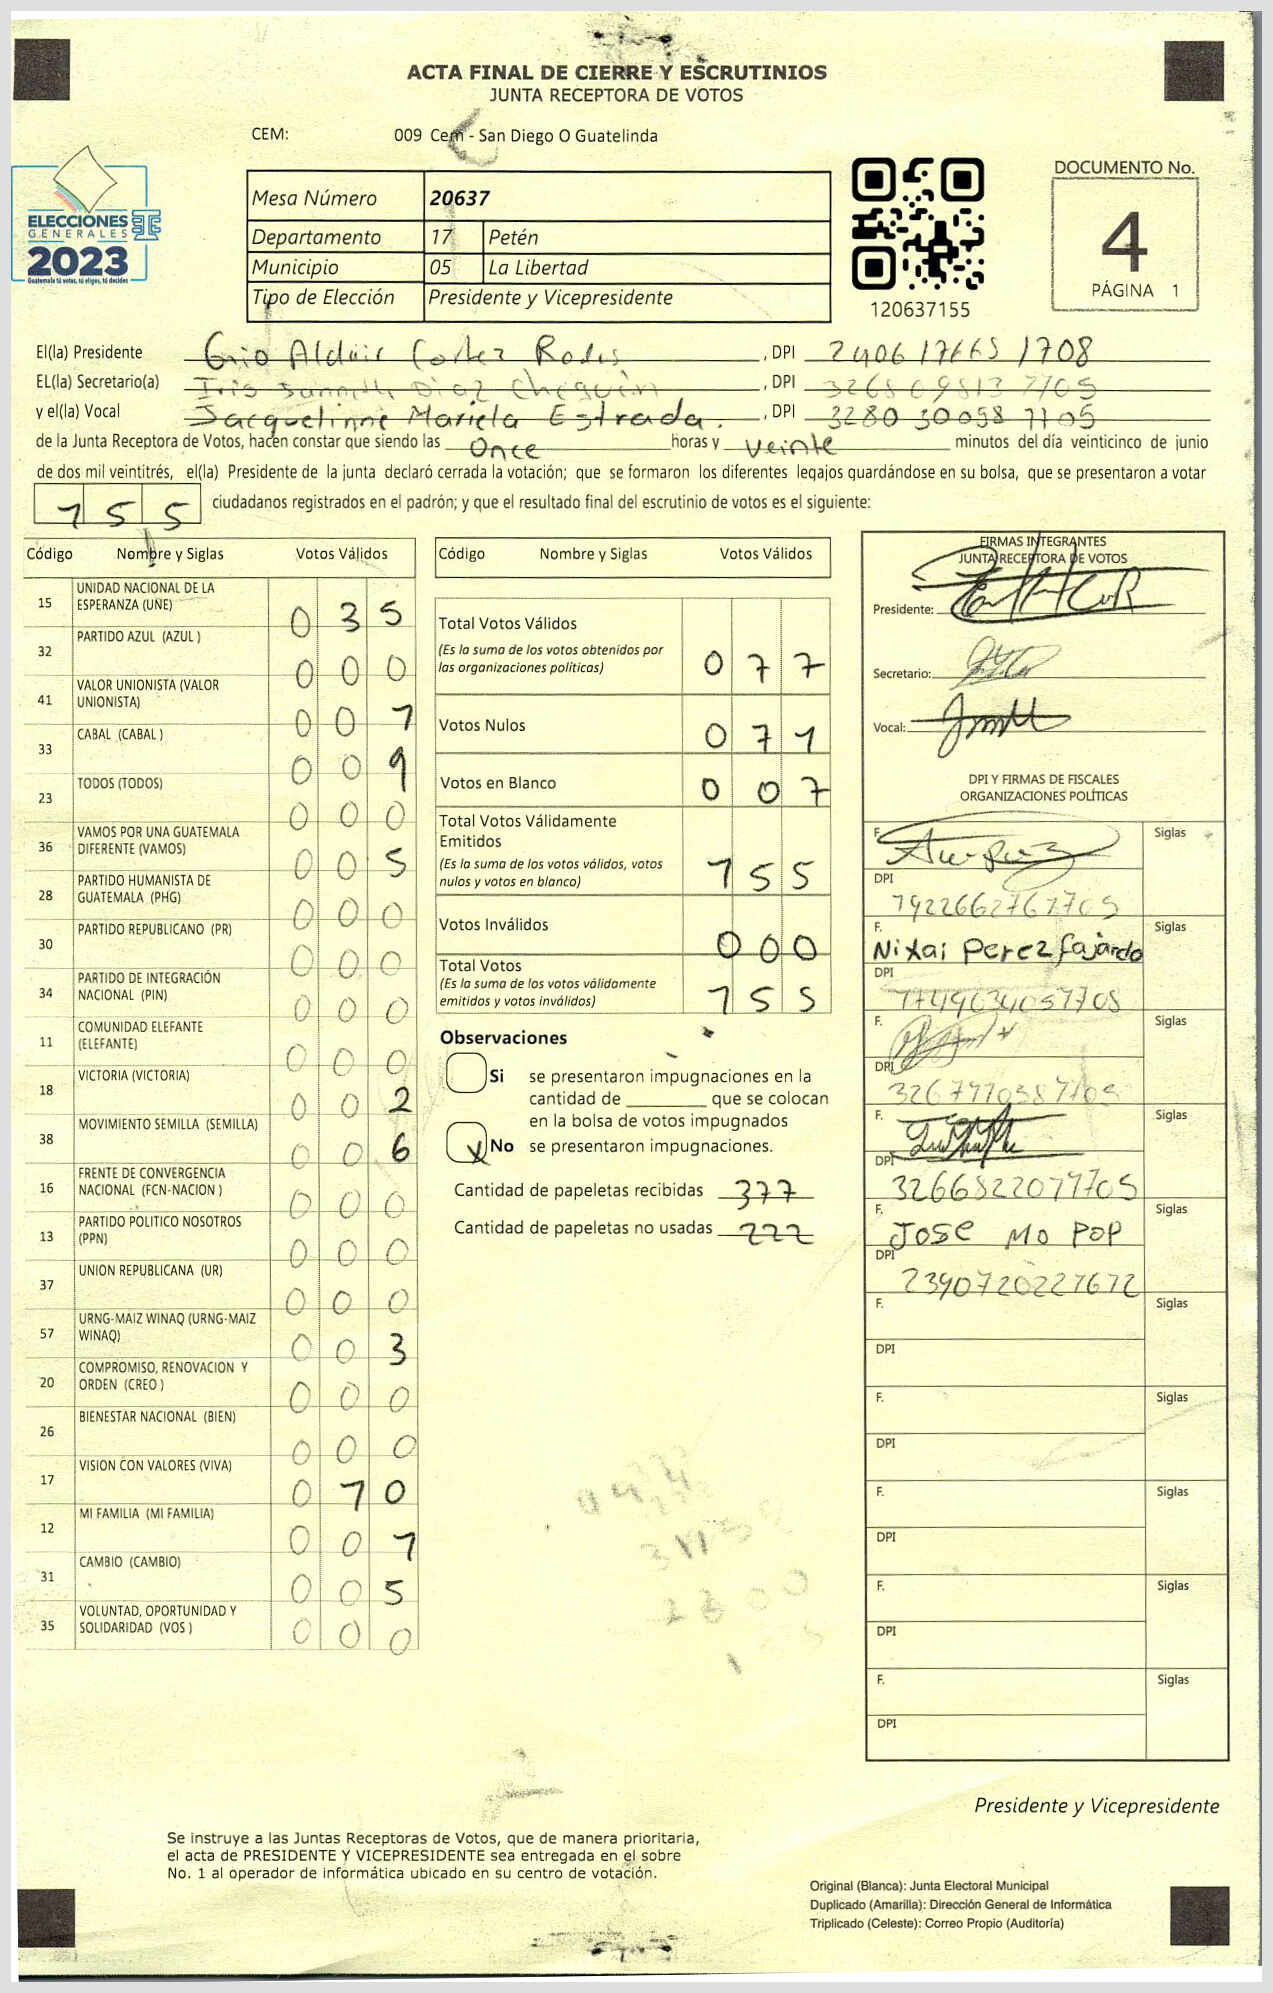 ACTA FINAL DE CIERRE Y ESCRUTINIOS
JUNTA RECEPTORA DE VOTOS
CEM: 009 Cem - San Diego O Guatelinda
ELECCIONES
GENERALES
2023
Guatemala tú votas, tú eliges, tú decides
Mesa Número 20637
Departamento 17 Petén
Municipio 05 La Libertad
Tipo de Elección Presidente y Vicepresidente
120637155
DOCUMENTO No.
4
PÁGINA 1
El(la) Presidente Aldair Cortez , DPI
EL(la) Secretario(a) Iris Diaz , DPI
y el(la) Vocal Jacquelinne Mariela Estrada. , DPI
de la Junta Receptora de Votos, hacen constar que siendo las Once horas y veinte minutos del día veinticinco de junio
de dos mil veintitrés, el(la) Presidente de la junta declaró cerrada la votación; que se formaron los diferentes legajos quardándose en su bolsa, que se presentaron a votar
155 ciudadanos registrados en el padrón; y que el resultado final del escrutinio de votos es el siguiente:
Código Nombre y Siglas Votos Válidos
15 UNIDAD NACIONAL DE LA
ESPERANZA (UNE) 035
32 PARTIDO AZUL (AZUL ) 000
41 VALOR UNIONISTA (VALOR
UNIONISTA) 001
33 CABAL (CABAL ) 009
23 TODOS (TODOS) 000
36 VAMOS POR UNA GUATEMALA
DIFERENTE (VAMOS) 005
28 PARTIDO HUMANISTA DE
GUATEMALA (PHG) 000
30 PARTIDO REPUBLICANO (PR) 000
34 PARTIDO DE INTEGRACIÓN
NACIONAL (PIN) 000
11 COMUNIDAD ELEFANTE
(ELEFANTE) 000
18 VICTORIA (VICTORIA) 002
38 MOVIMIENTO SEMILLA (SEMILLA) 006
16 FRENTE DE CONVERGENCIA
NACIONAL (FCN-NACION ) 000
13 PARTIDO POLITICO NOSOTROS
(PPN) 000
37 UNION REPUBLICANA (UR) 000
57 URNG-MAIZ WINAQ (URNG-MAIZ
WINAQ) 003
20 COMPROMISO, RENOVACION Y
ORDEN (CREO ) 000
26 BIENESTAR NACIONAL (BIEN) 000
17 VISION CON VALORES (VIVA) 010
12 MI FAMILIA (MI FAMILIA) 001
31 CAMBIO (CAMBIO) 005
35 VOLUNTAD, OPORTUNIDAD Y
SOLIDARIDAD (VOS ) 000
Código Nombre y Siglas Votos Válidos
Total Votos Válidos
(Es la suma de los votos obtenidos por
las organizaciones políticas) 077
Votos Nulos 071
Votos en Blanco 007
Total Votos Válidamente
Emitidos
(Es la suma de los votos válidos, votos
nulos y votos en blanco) 155
Votos Inválidos 000
Total Votos
(Es la suma de los votos válidamente
emitidos y votos inválidos) 155
Observaciones
Si se presentaron impugnaciones en la
cantidad de ________ que se colocan
en la bolsa de votos impugnados
X No se presentaron impugnaciones.
Cantidad de papeletas recibidas 377
Cantidad de papeletas no usadas 222
FIRMAS INTEGRANTES
JUNTA RECEPTORA DE VOTOS
Presidente:
Secretario:
Vocal:
DPI Y FIRMAS DE FISCALES
ORGANIZACIONES POLÍTICAS
F. Siglas
DPI
F. Siglas
Nixai Perez fajardo
DPI
F. Siglas
DPI
F. Siglas
DPI
F. Siglas
JOSE MO POP
DPI
F. Siglas
DPI
F. Siglas
DPI
F. Siglas
DPI
F. Siglas
DPI
F. Siglas
DPI
Presidente y Vicepresidente
Se instruye a las Juntas Receptoras de Votos, que de manera prioritaria,
el acta de PRESIDENTE Y VICEPRESIDENTE sea entregada en el sobre
No. 1 al operador de informática ubicado en su centro de votación.
Original (Blanca): Junta Electoral Municipal
Duplicado (Amarilla): Dirección General de Informática
Triplicado (Celeste): Correo Propio (Auditoría)